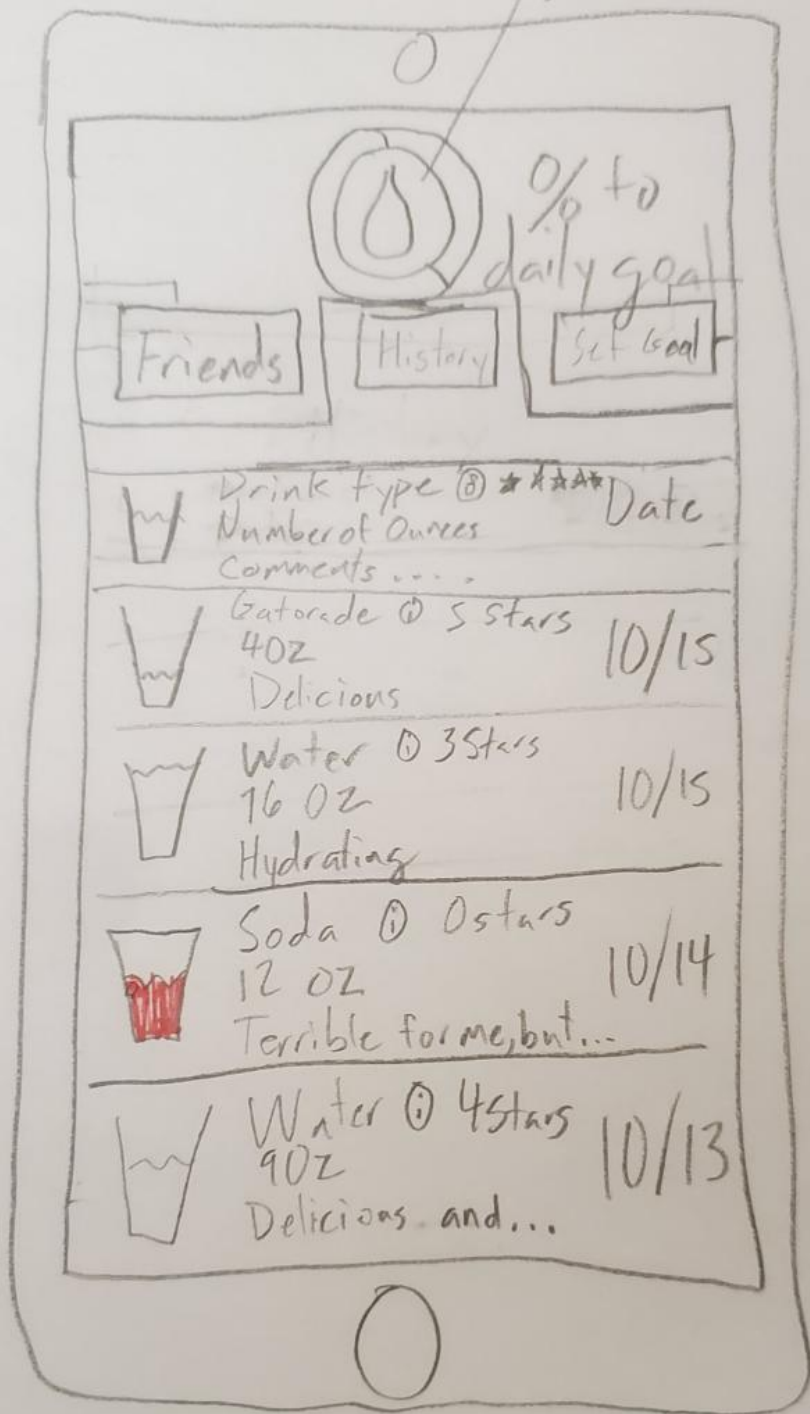 % to
daily goal
Friends
History
Set Goal
Drink type ⓘ ★★★★★ Date
Number of Ounces
Comments.....
Gatorade ⓘ 5 Stars
4OZ
10/15
Delicious
Water ⓘ 3 Stars
16 OZ
10/15
Hydrating
Soda ⓘ 0 stars
12 OZ
10/14
Terrible for me, but...
Water ⓘ 4 Stars
9OZ
10/13
Delicious and...